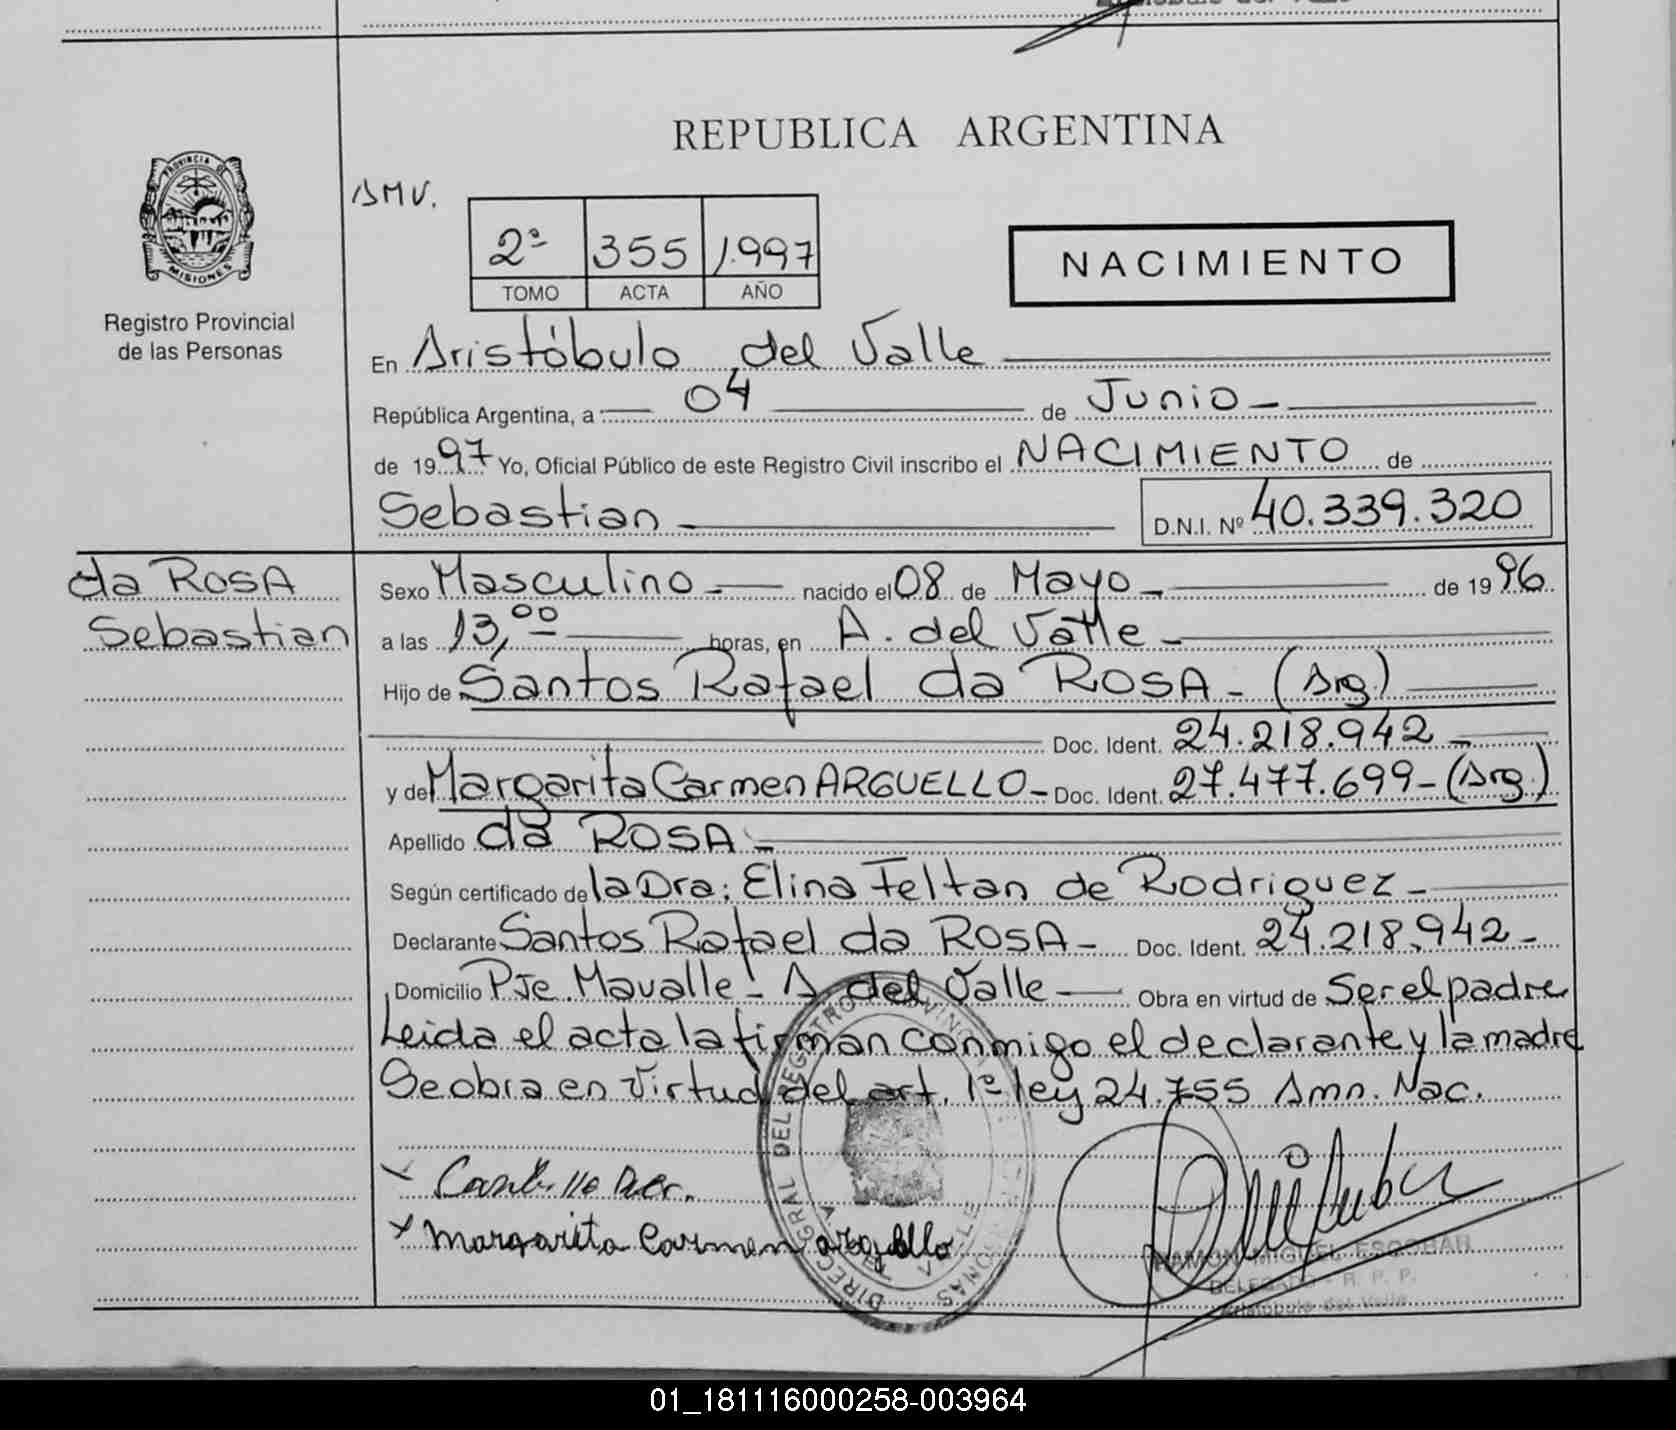 REPUBLICA ARGENTINA
PROVINCIA DE
MISIONES
Registro Provincial
de las Personas
AMV.
2ª 355 1.997
TOMO ACTA AÑO
NACIMIENTO
En Aristóbulo del Valle
República Argentina, a 04 de Junio
de 1997 Yo, Oficial Público de este Registro Civil inscribo el NACIMIENTO de
Sebastian D.N.I. Nº 40.339.320
da ROSA
Sebastian
Sexo Masculino nacido el 08 de Mayo de 1996
a las 13,00 horas, en A. del Valle
Hijo de Santos Rafael da ROSA - (Arg.)
Doc. Ident. 24.218.942
y de Margarita Carmen ARGUELLO - Doc. Ident. 27.477.699 - (Arg.)
Apellido da ROSA
Según certificado de la Dra; Elina Feltan de Rodriguez
Declarante Santos Rafael da ROSA - Doc. Ident. 24.218.942
Domicilio Pje. Mavalle - A del Valle Obra en virtud de Ser el padre
Leida el acta la firman conmigo el declarante y la madre
Se obra en Virtud del art. 1º ley 24.755 Amn. Nac.
x
x Margarita Carmen arguello
RAMON MIGUEL ESCOBAR
DELEGADO - R. P. P.
Aristobulo del Valle
01_181116000258-003964